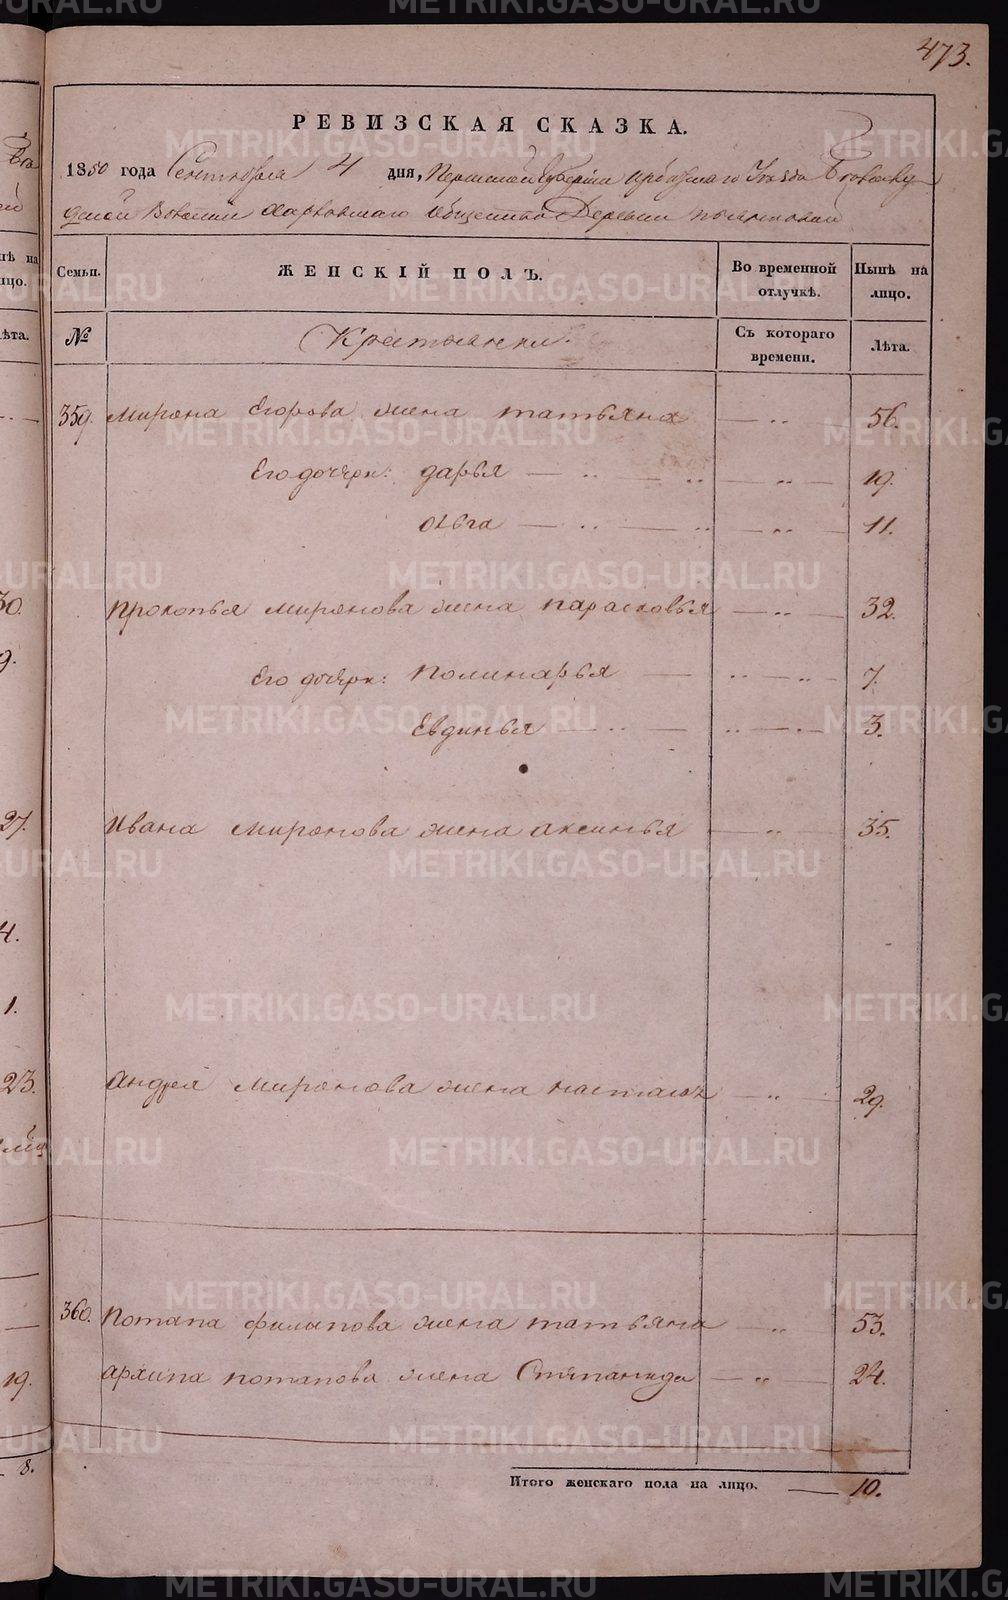 METRIKI.GASO-URAL.RU
473.
РЕВИЗСКАЯ СКАЗКА.
1850 года Сентября 4 дня, Пермской Губернии Ирбитскаго Уезда
Волости Общества Деревни
Семьи. ЖЕНСКІЙ ПОЛЪ. Во временной отлучкѣ. Нынѣ на лицо.
№ Крестьянки. Съ котораго времени. Лѣта.
359. Мирона Егорова жена татьяна — „ — 56.
Его дочери: дарья — „ — „ — „ — 19.
олга — „ — „ — „ — 11.
Прокопья миронова жена парасковья — „ — 32.
Его дочери: Полинарья — „ — „ — 7.
Евдинья — „ — „ — „ — 3.
Ивана миронова жена аксинья — „ — 35.
андрея миронова жена настасья — „ — 29.
360. Потапа филипова жена татьяна — „ — 53.
архипа потапова жена Степанида — „ — 24.
Итого женскаго пола на лицо. — 10.